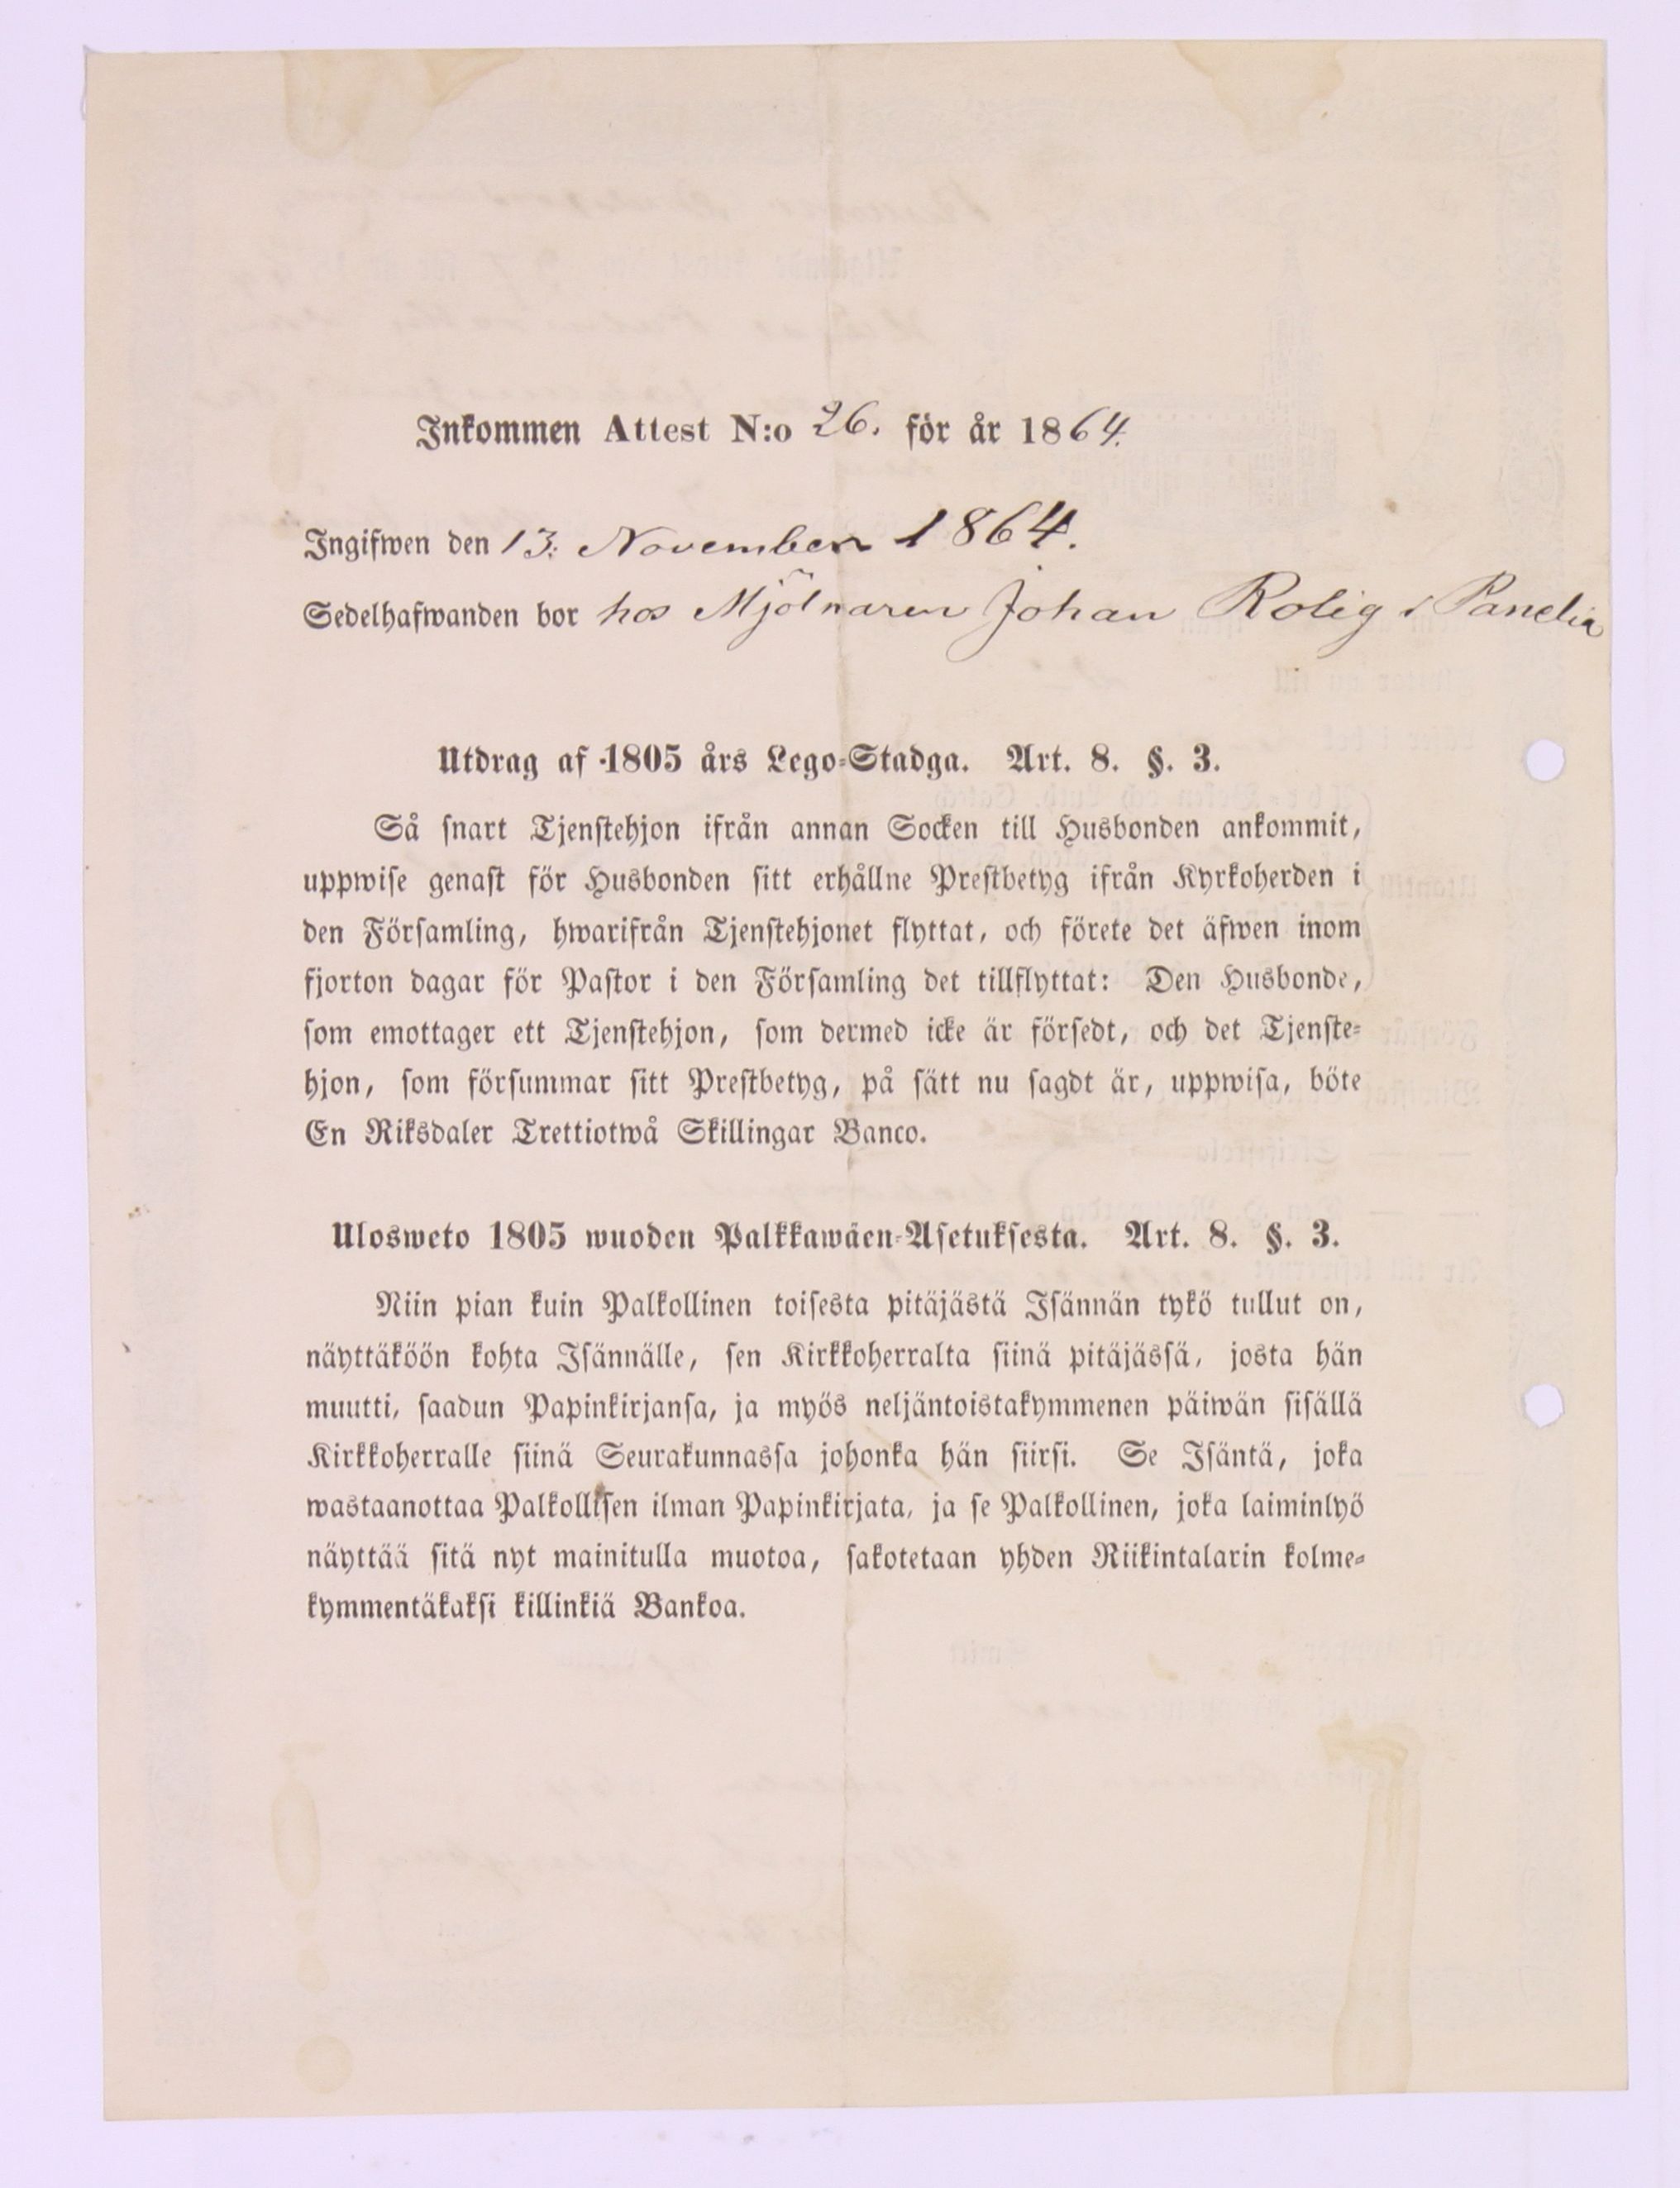 Inkommen Attest N:o 26. för år 1864.
Ingifwen den 13. November 1864.
Sedelhafwanden bor hos Mjölnaren Johan Rolig i Panelia
Utdrag af 1805 års Lego-Stadga. Art. 8. §. 3.
Så snart Tjenstehjon ifrån annan Socken till Husbonden ankommit,
uppwise genast för Husbonden sitt erhållne Prestbetyg ifrån Kyrkoherden i
den Församling, hwarifrån Tjenstehjonet flyttat, och förete det äfwen inom
fjorton dagar för Pastor i den Församling det tillflyttat: Den Husbonde,
som emottager ett Tjenstehjon, som dermed icke är försedt, och det Tjenste-
hjon, som försummar sitt Prestbetyg, på sätt nu sagdt är, uppwisa, böte
En Riksdaler Trettiotwå Skillingar Banco.
Ulosweto 1805 wuoden Palkkawäen-Asetuksesta. Art. 8. §. 3.
Niin pian kuin Palkollinen toisesta pitäjästä Isännän tykö tullut on,
näyttäköön kohta Isännälle, sen Kirkkoherralta siinä pitäjässä, josta hän
muutti, saadun Papinkirjansa, ja myös neljäntoistakymmenen päiwän sisällä
Kirkkoherralle siinä Seurakunnassa johonka hän siirsi. Se Isäntä, joka
wastaanottaa Palkollisen ilman Papinkirjata, ja se Palkollinen, joka laiminlyö
näyttää sitä nyt mainitulla muotoa, sakotetaan yhden Riikintalarin kolme-
kymmentäkaksi killinkiä Bankoa.